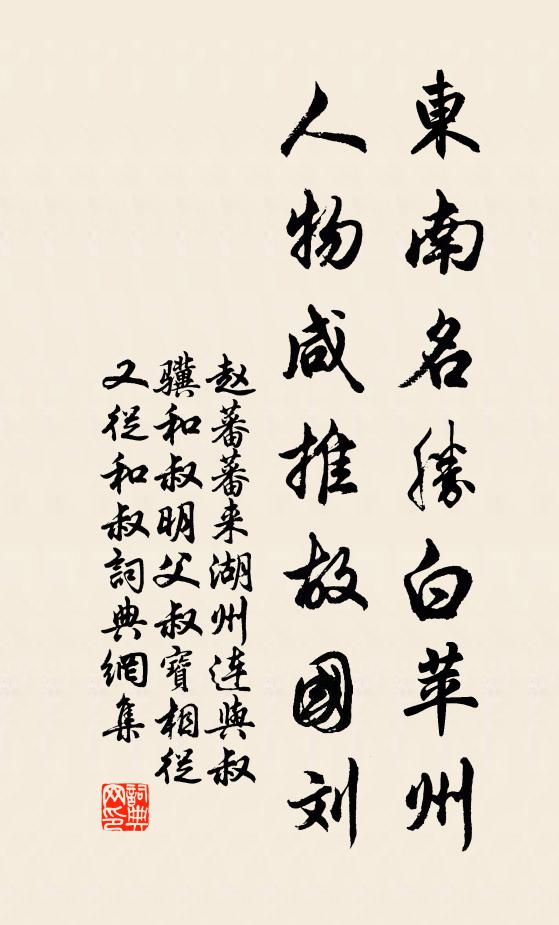 東南名勝白苹州
人物咸推故國刘
赵蕃蕃来湖州连與叔
驥和叔明父叔寶相從
又從和叔詞典網集
詞典
网印